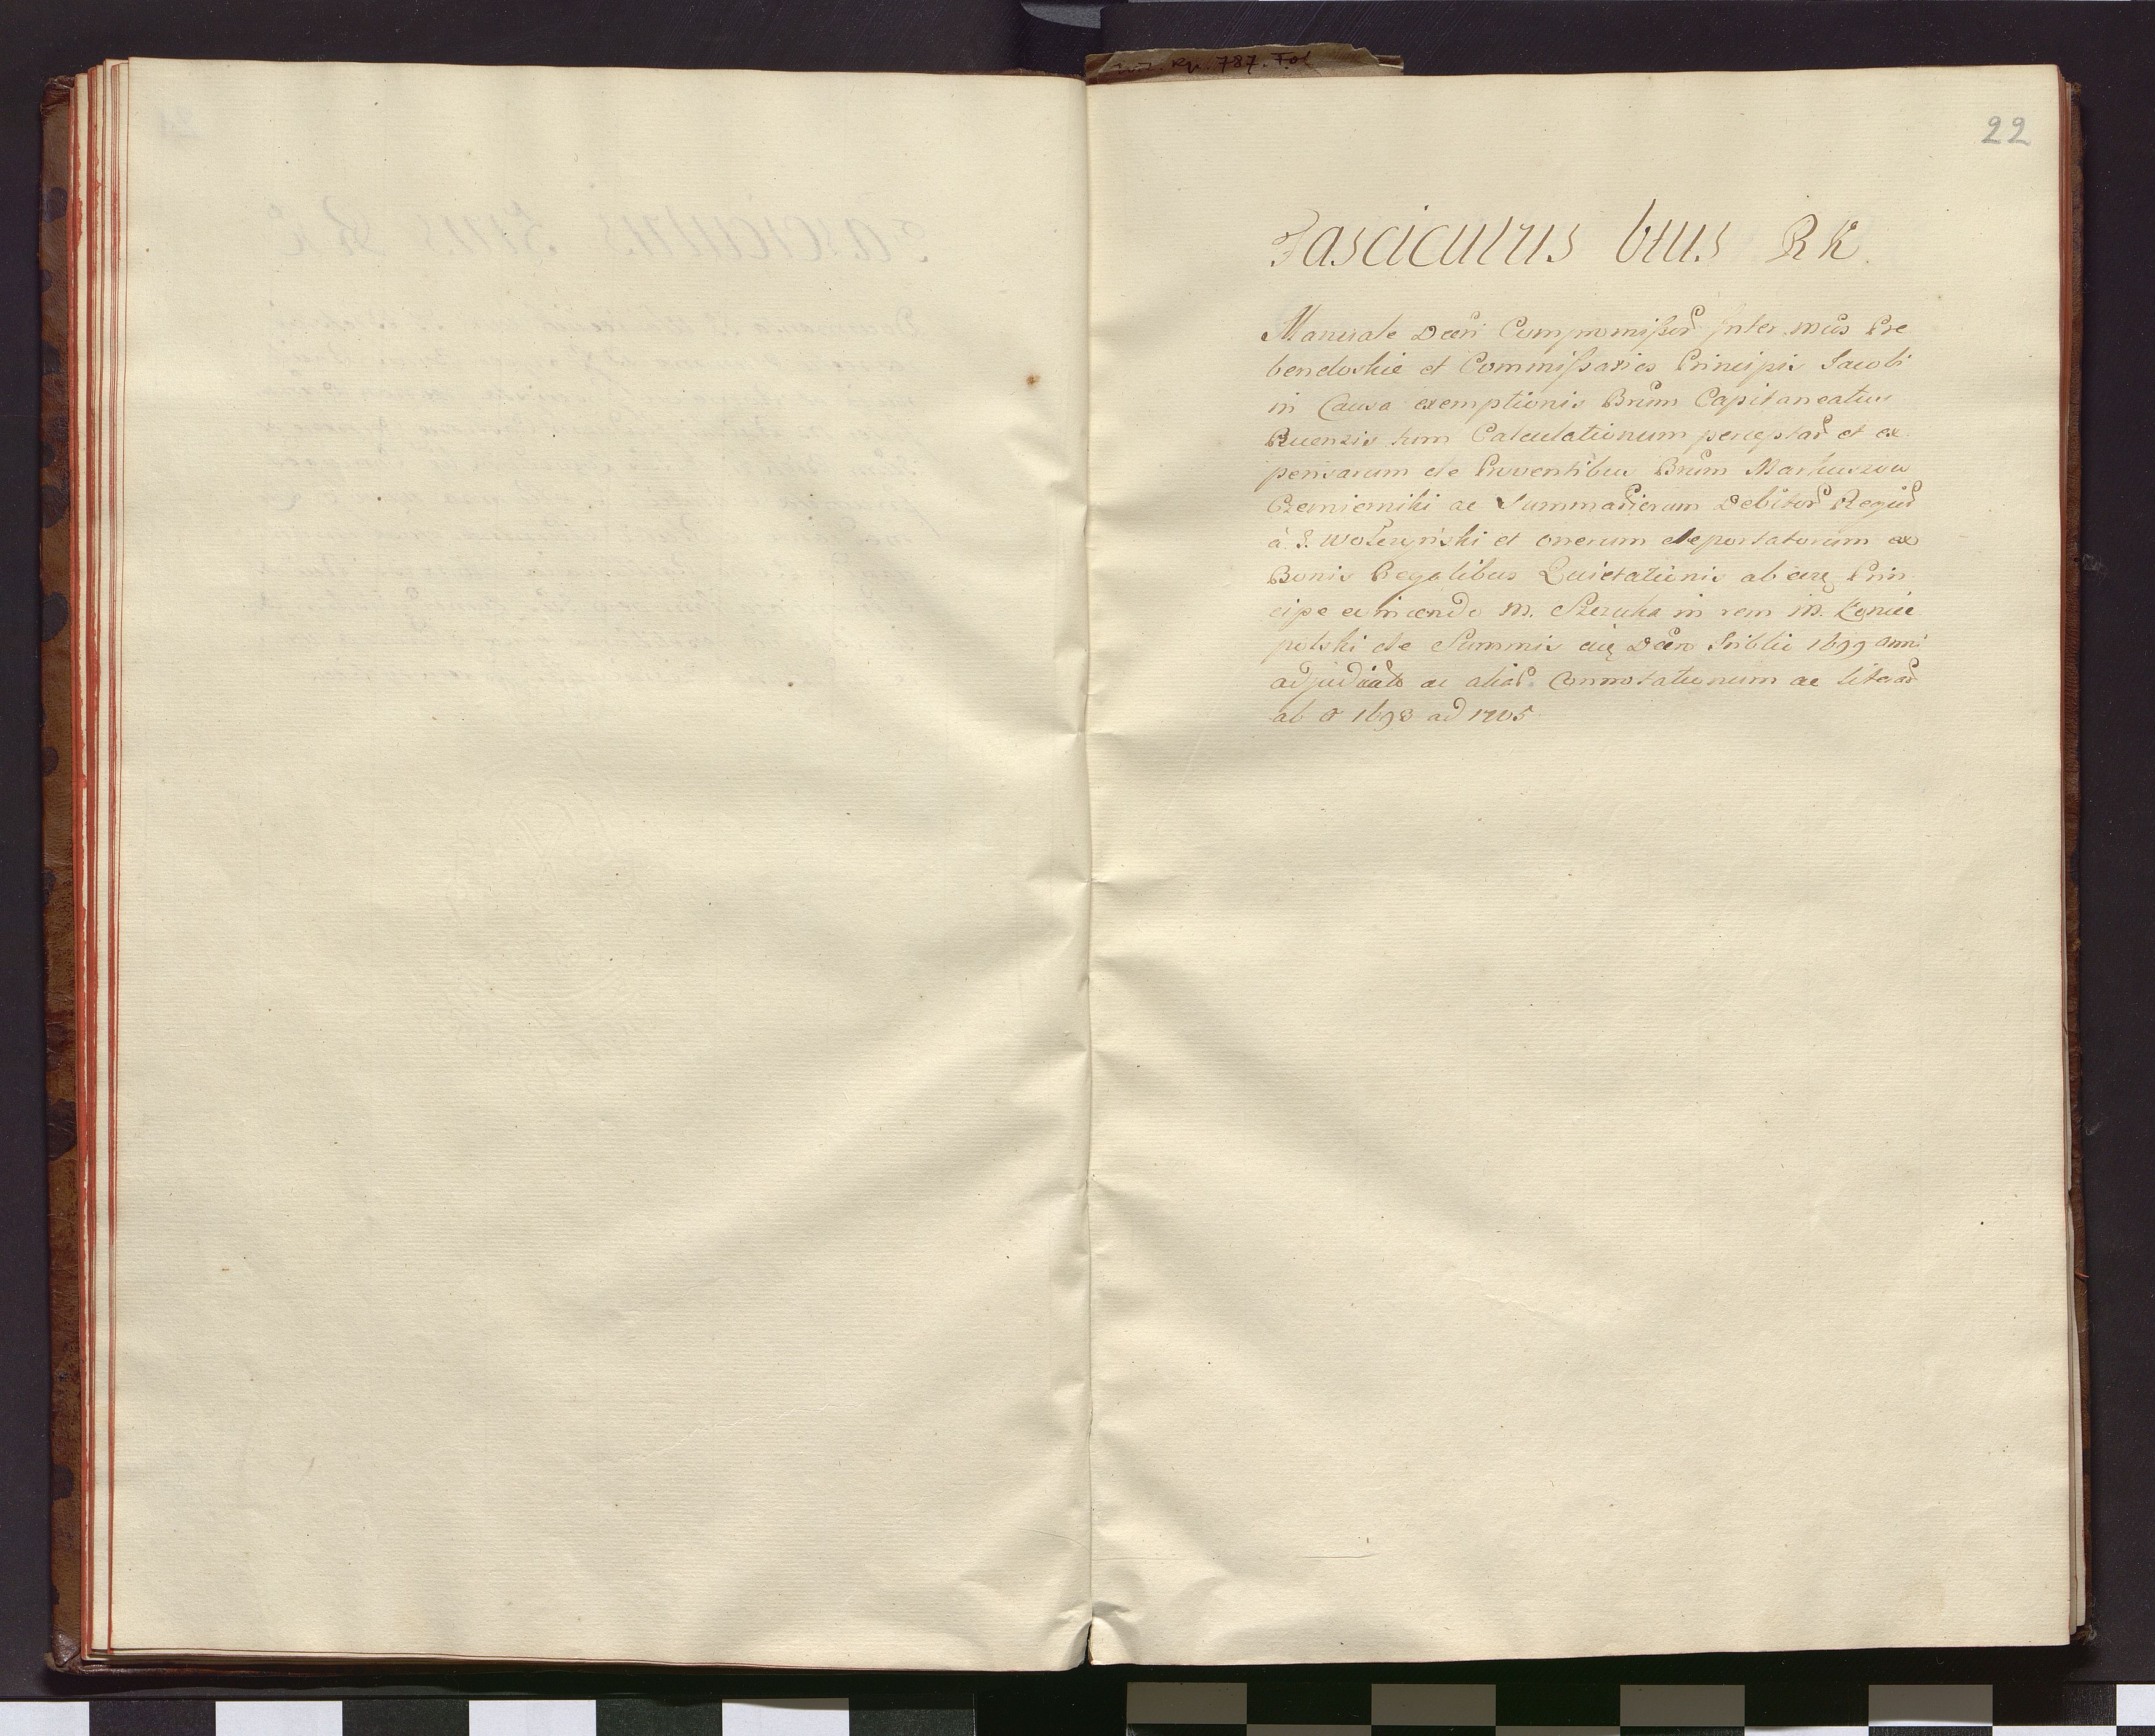 787. Fol
22
Fasciculus 6tus RK.
Manuale Dćti Compromissor Inter mćos Pre
bendoskie et Commissarios Principis Jacobi
in Causa exemptionis Bnum Capitaneatus
Pucensis tum Calculationum perceptar et ex
pensarum de Proventibus Bnum Markuszow
Czemierniki ac Summariorum Debitor Regior
à S. Wołczyński et onerum deportatorum ex
Bonis Regalibus Quietationis ab eaq Prin
cipe eximendo M. Szczuka in rem M. Koniec
polski de Summis eiq Dćto Triblii 1699 anni
adjudicato ac aliar Connotationum ac literar
ab a 1698 ad 1705